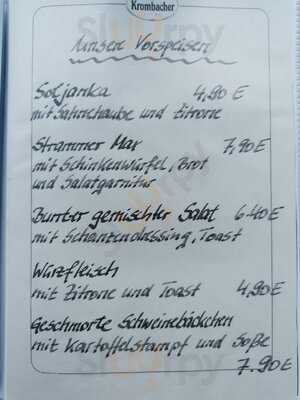 Krombacher
Unsere Vorspeisen
Soljanka 4,90 E
mit Sahnehaube und Zitrone
Strammer Max 7,90 E
mit Schinkenwürfel, Brot
und Salatgarnitur
Bunter gemischter Salat 6.40 E
mit Schanzendressing, Toast
Würzfleisch
mit Zitrone und Toast 4,90 E
Geschmorte Schweinebäckchen
mit Kartoffelstampf und Soße
7.90 E